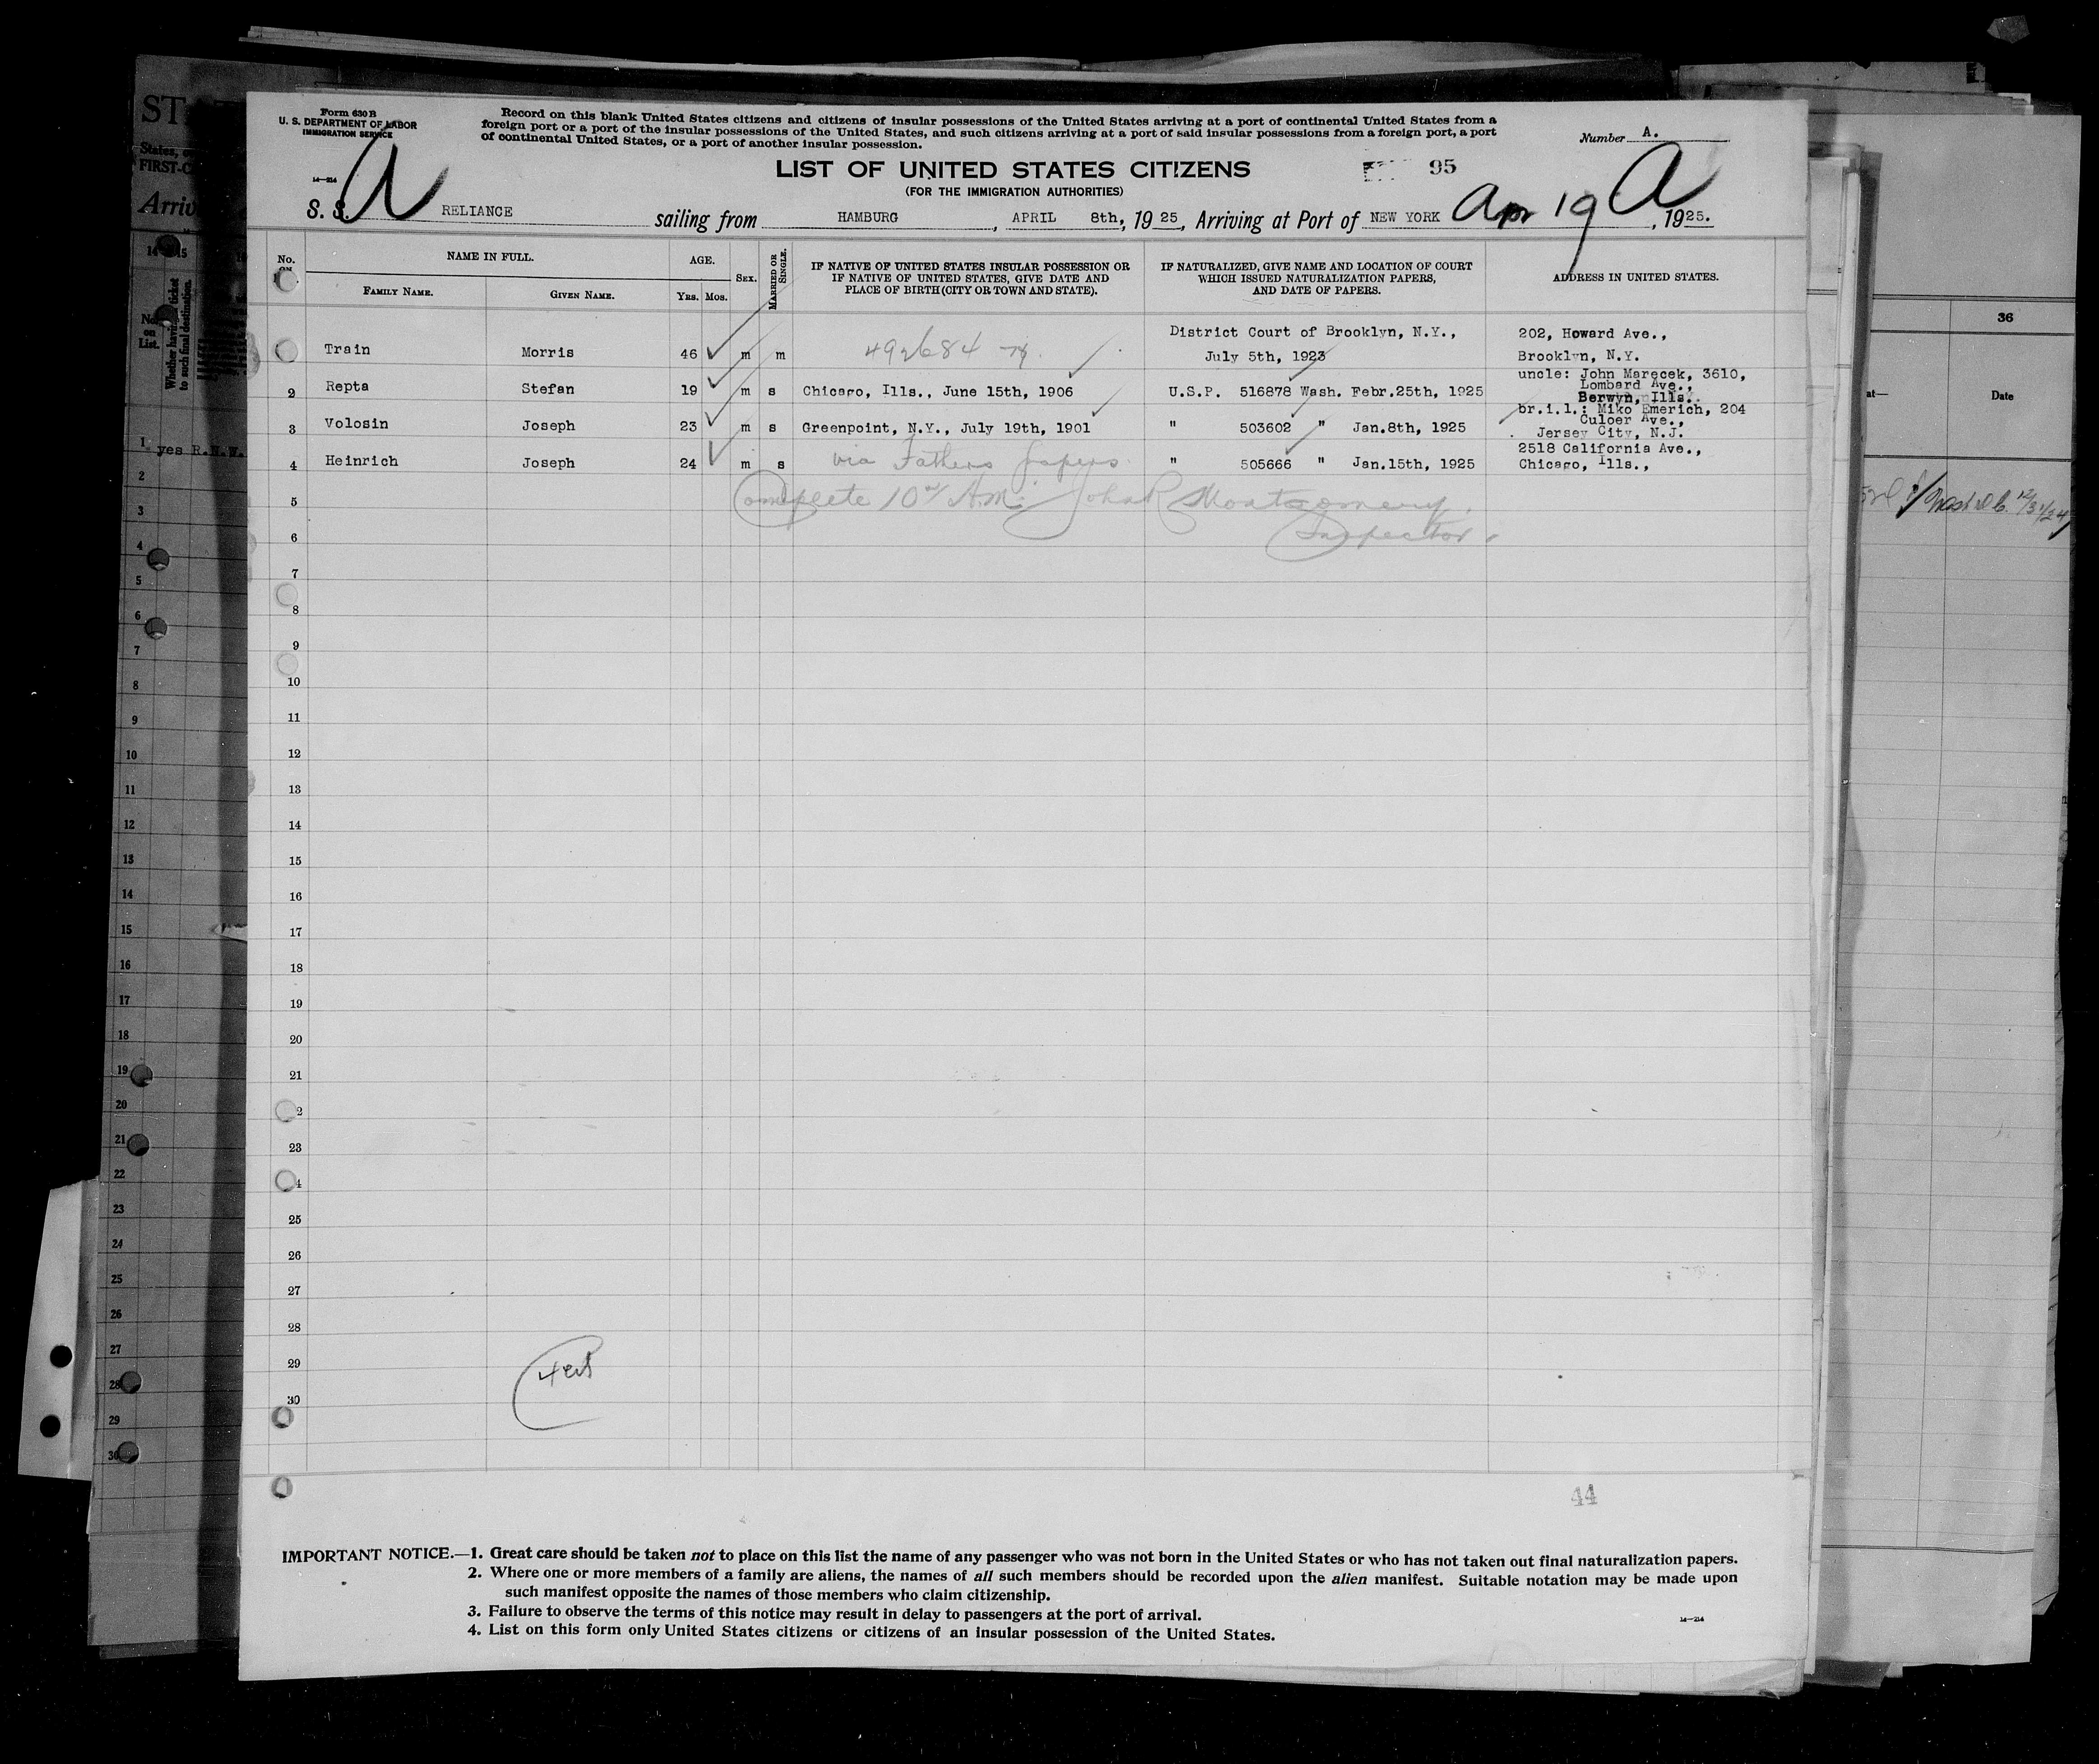 Form 630 B
U. S. DEPARTMENT OF LABOR
IMMIGRATION SERVICE
14—214
Record on this blank United States citizens and citizens of insular possessions of the United States arriving at a port of continental United States from a
foreign port or a port of the insular possessions of the United States, and such citizens arriving at a port of said insular possessions from a foreign port, a port
of continental United States, or a port of another insular possession.
Number A.
LIST OF UNITED STATES CITIZENS
95
(FOR THE IMMIGRATION AUTHORITIES)
A
A
S. S. RELIANCE sailing from HAMBURG, APRIL 8th, 1925, Arriving at Port of NEW YORK Apr 19, 1925.
No.
NAME IN FULL.
FAMILY NAME.
GIVEN NAME.
AGE.
YRS. MOS.
SEX.
MARRIED OR SINGLE.
IF NATIVE OF UNITED STATES INSULAR POSSESSION OR
IF NATIVE OF UNITED STATES, GIVE DATE AND
PLACE OF BIRTH (CITY OR TOWN AND STATE).
IF NATURALIZED, GIVE NAME AND LOCATION OF COURT
WHICH ISSUED NATURALIZATION PAPERS,
AND DATE OF PAPERS.
ADDRESS IN UNITED STATES.
District Court of Brooklyn, N.Y., 202, Howard Ave.,
Train Morris 46 m m 492684 July 5th, 1923 Brooklyn, N.Y.
uncle: John Marecek, 3610,
2 Repta Stefan 19 m s Chicago, Ills., June 15th, 1906 U.S.P. 516878 Wash. Febr.25th, 1925 Lombard Ave.,
Berwyn, Ills.
br.i.l.: Miko Emerich, 204
3 Volosin Joseph 23 m s Greenpoint, N.Y., July 19th, 1901 " 503602 " Jan.8th, 1925 Culoer Ave.,
Jersey City, N.J.
2518 California Ave.,
4 Heinrich Joseph 24 m s via Fathers papers " 505666 " Jan.15th, 1925 Chicago, Ills.,
5 Complete 10 A.M. John R Montgomery
6 Inspector.
7
8
9
10
11
12
13
14
15
16
17
18
19
20
21
2
23
4
25
26
27
28
29
30
44
IMPORTANT NOTICE.—1. Great care should be taken not to place on this list the name of any passenger who was not born in the United States or who has not taken out final naturalization papers.
2. Where one or more members of a family are aliens, the names of all such members should be recorded upon the alien manifest. Suitable notation may be made upon
such manifest opposite the names of those members who claim citizenship.
3. Failure to observe the terms of this notice may result in delay to passengers at the port of arrival.
4. List on this form only United States citizens or citizens of an insular possession of the United States.
14—214
ST
States,
FIRST-C
Arriv
14 15
No.
on
List.
Whether having a ticket
to such final destination.
1 yes R.N.W.
2
3
4
5
6
7
8
9
10
11
12
13
14
15
16
17
18
19
20
21
22
23
24
25
26
27
28
29
30
36
at—
Date
12/31/24